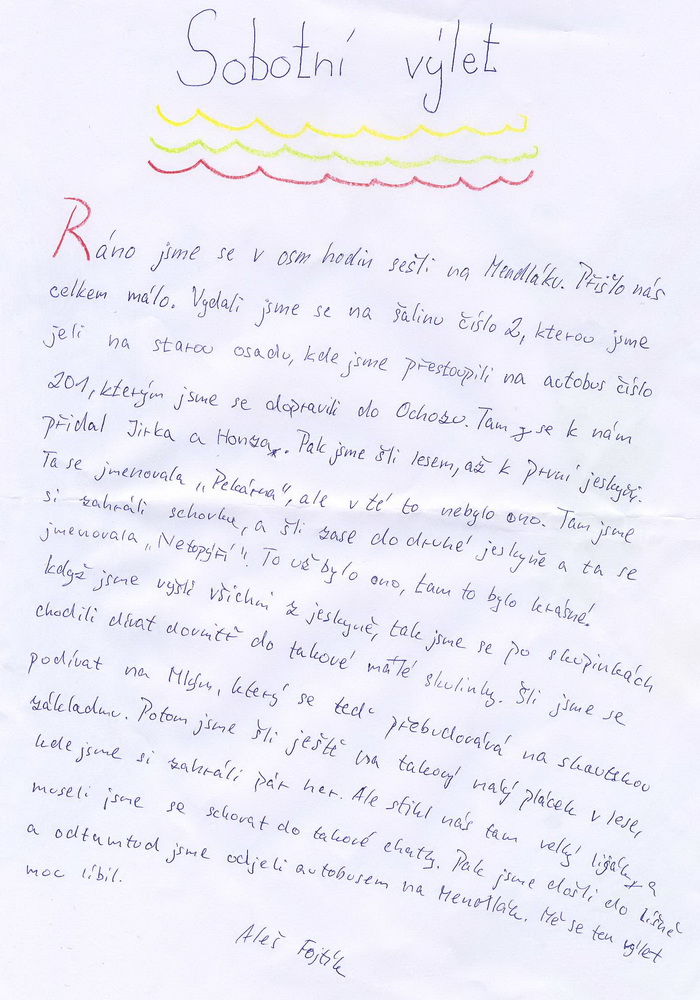 Sobotní výlet
Ráno jsme se v osm hodin sešli na Mendláku. Přišlo nás
celkem málo. Vydali jsme se na šalinu číslo 2, kterou jsme
jeli na starou osadu, kde jsme přestoupili na autobus číslo
201, kterým jsme se dopravili do Ochozu. Tam se k nám
přidal Jirka a Honza. Pak jsme šli lesem, až k první jeskyni.
Ta se jmenovala „Pekárna", ale v té to nebylo ono. Tam jsme
si zahráli schovku, a šli zase do druhé jeskyně a ta se
jmenovala „Netopýří". To už bylo ono, tam to bylo krásné.
když jsme vyšli všichni z jeskyně, tak jsme se po skupinkách
chodili dívat dovnitř do takové malé skulinky. Šli jsme se
podívat na Mlýn, který se teď přebudovává na skautskou
základnu. Potom jsme šli ještě na takový malý plácek v lese,
kde jsme si zahráli pár her. Ale stihl nás tam velký liják, a
museli jsme se schovat do takové chatky. Pak jsme došli do Líšně
a odtamtud jsme odjeli autobusem na Mendlák. Mě se ten výlet
moc líbil.
Aleš Fojtík